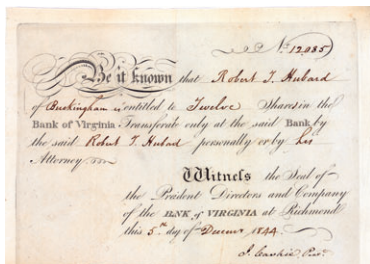 No. 12,085
Be it known that Robert T. Hubard
of Buckingham is entitled to Twelve Shares in the
Bank of Virginia Transferable only at the said Bank by
the said Robert T. Hubard personally or by his
Attorney
Witness the Seal of
the President Directors and Company
of the BANK of VIRGINIA at Richmond
this 5th day of December 1844